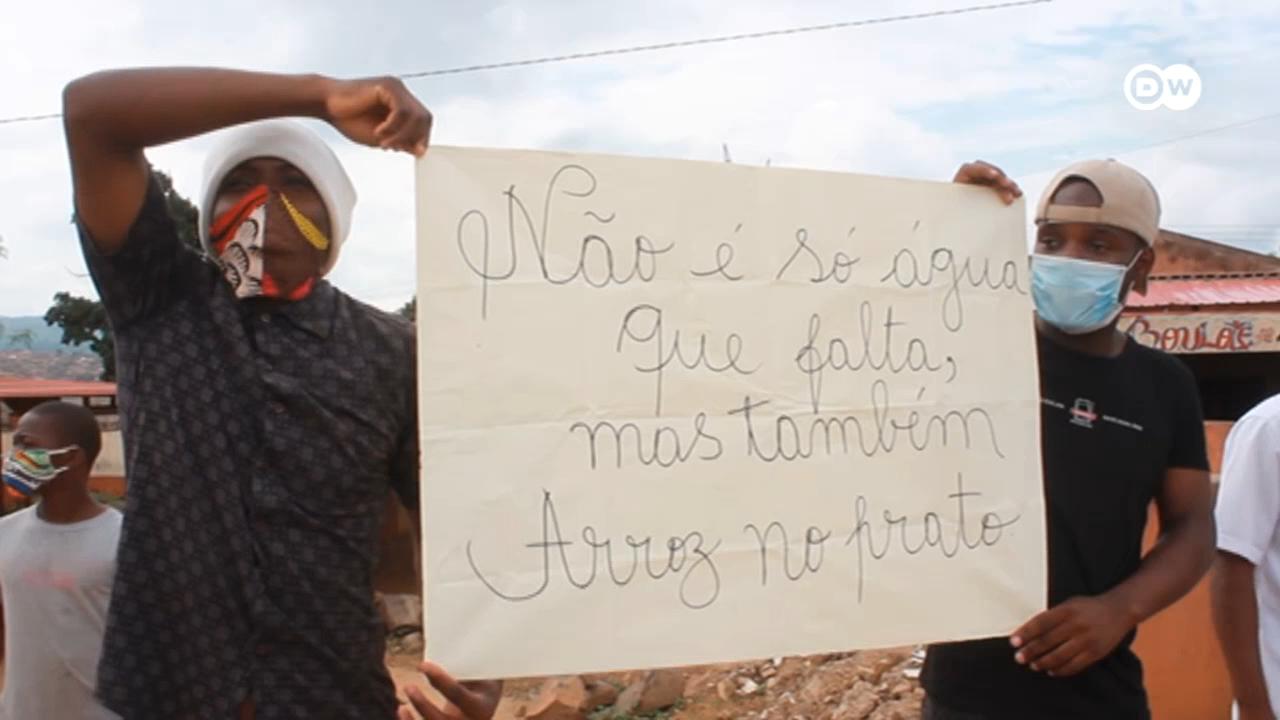 DW
Não é só água
que falta,
mas também
Arroz no prato
BOULOS